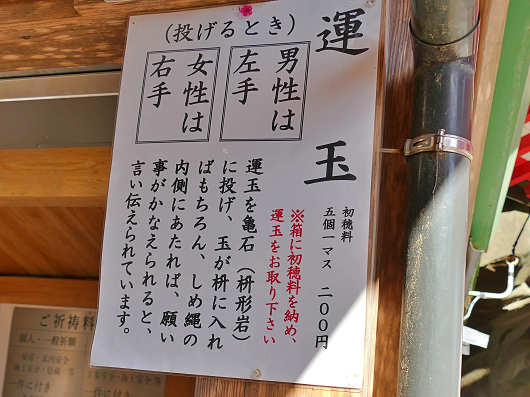 運玉
初穂料
五個一マス 二〇〇円
(投げるとき)
男性は
左手
女性は
右手
※箱に初穂料を納め、
運玉をお取り下さい
運玉を亀石(枡形岩)
に投げ、玉が枡に入れ
ばもちろん、しめ縄の
内側にあたれば、願い
事がかなえられると、
言い伝えられています。
ご祈祷料
個人・一般祈願
一件に付き